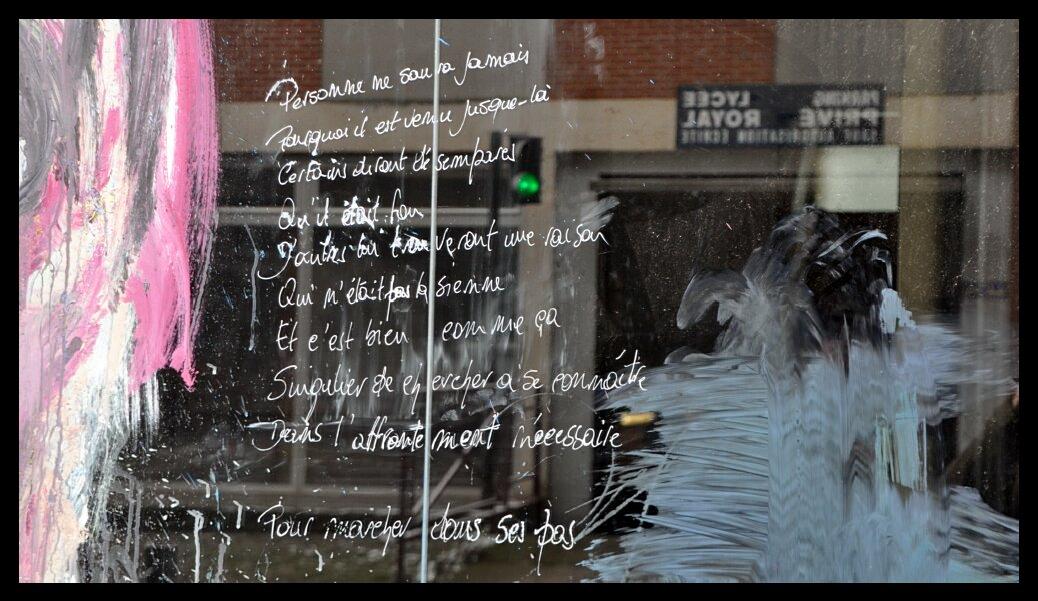 Personne ne saura jamais
Pourquoi il est venu jusque-là
Certains diront désemparés
Qu'il était fou
D'autres lui trouveront une raison
Qui n'était pas la sienne
Et c'est bien comme ça
Singulier de chercher à se connaître
Dans l'affrontement nécessaire
Pour marcher dans ses pas
PARKING LYCEE
PRIVE ROYAL
SANS AUTORISATION ECRITE